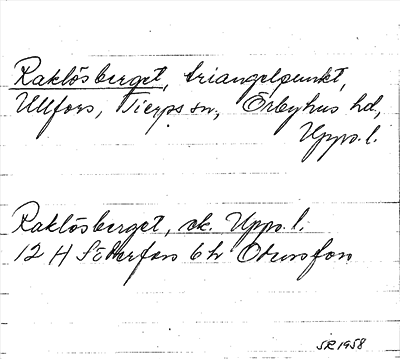 Raklösberget, triangelpunkt,
Ullfors, Tierps sn, Örbyhus hd,
Upps. l.
Raklösberget, ek. Upps. l.
12 H Söderfors 6 h Odensfors
SR 1958